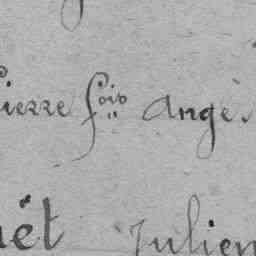 ierre fois Ange.
uët Julien